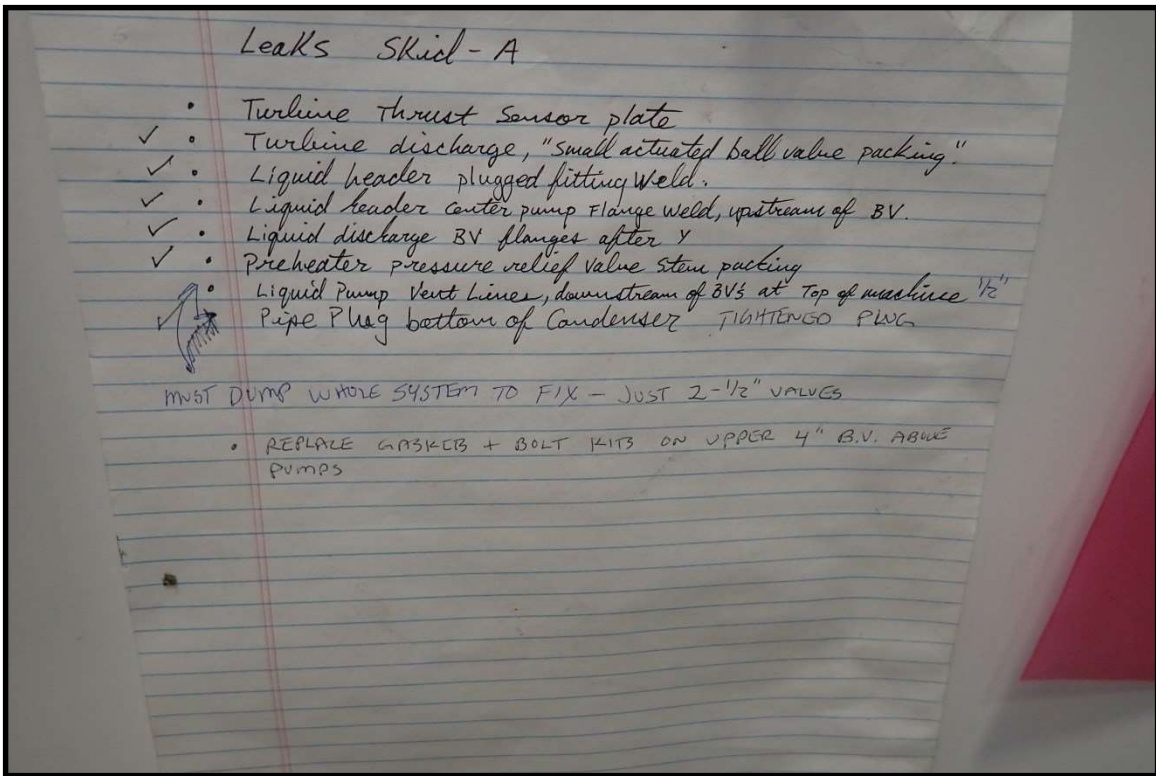 Leaks Skid-A
• Turbine Thrust Sensor plate
✓ • Turbine discharge, "small actuated ball value packing."
✓ • Liquid header plugged fitting Weld.
✓ • Liquid header center pump Flange Weld, upstream of BV.
✓ • Liquid discharge BV flanges after Y
✓ • Preheater pressure relief value stem packing
• Liquid Pump Vent Lines, downstream of BV's at Top of machine 1/2"
✓ Pipe Plug bottom of Condenser TIGHTENED PLUG
MUST DUMP WHOLE SYSTEM TO FIX - JUST 2-1/2" VALVES
• REPLACE GASKETS + BOLT KITS ON UPPER 4" B.V. ABOVE
PUMPS